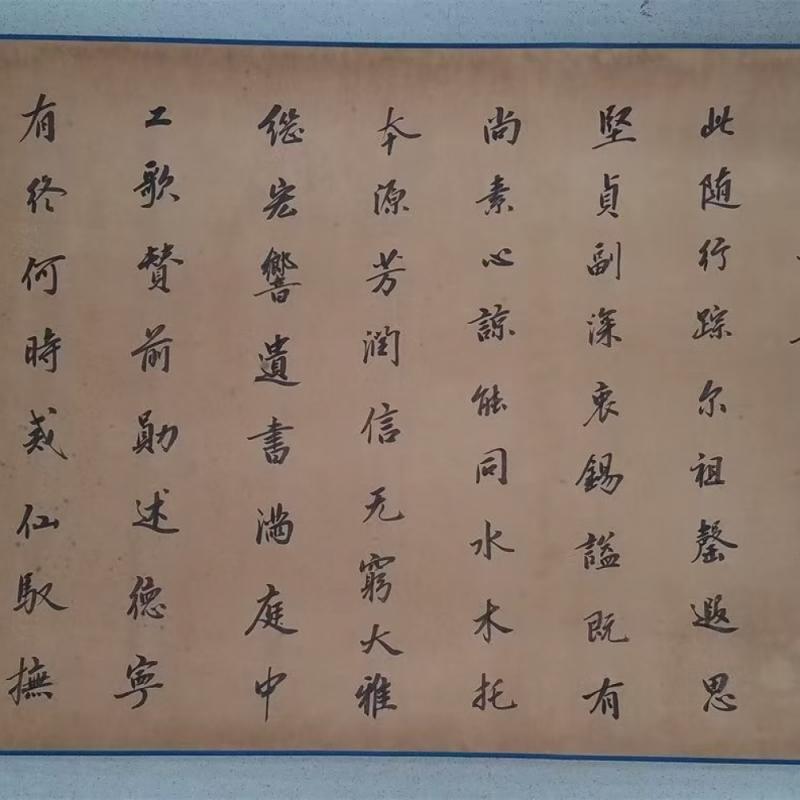 此随行踪尔祖罄遐思
堅貞副深衷錫謚既有
尚素心諒能同水木托
本源芳潤信无窮大雅
继宏響遺書满庭中
工歌賛前勛述德寧
有终何時戒仙馭撫